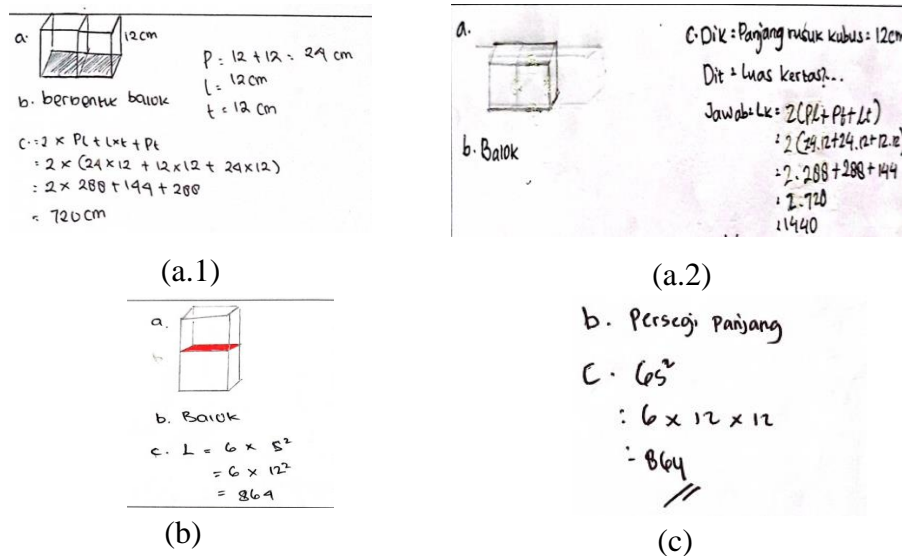 a.
12cm
P = 12 + 12 = 24 cm
l = 12cm
t = 12 cm
b. berbentuk balok
C. = 2 x Pl + lxt + Pt
= 2 x (24x12 + 12x12 + 24x12)
= 2 x 288 + 144 + 288
= 720cm
(a.1)
a.
b. Balok
C. Dik = Panjang rusuk kubus = 12cm
Dit = Luas kertas?...
Jawab = Lk = 2(Pl + Pt + Lt)
= 2(24.12+24.12+12.12)
= 2.288 + 288 + 144
= 2.720
= 1440
(a.2)
a.
b. Balok
c. L = 6 x s²
= 6 x 12²
= 864
(b)
b. Persegi Panjang
C. 6s²
= 6 x 12 x 12
= 864
(c)